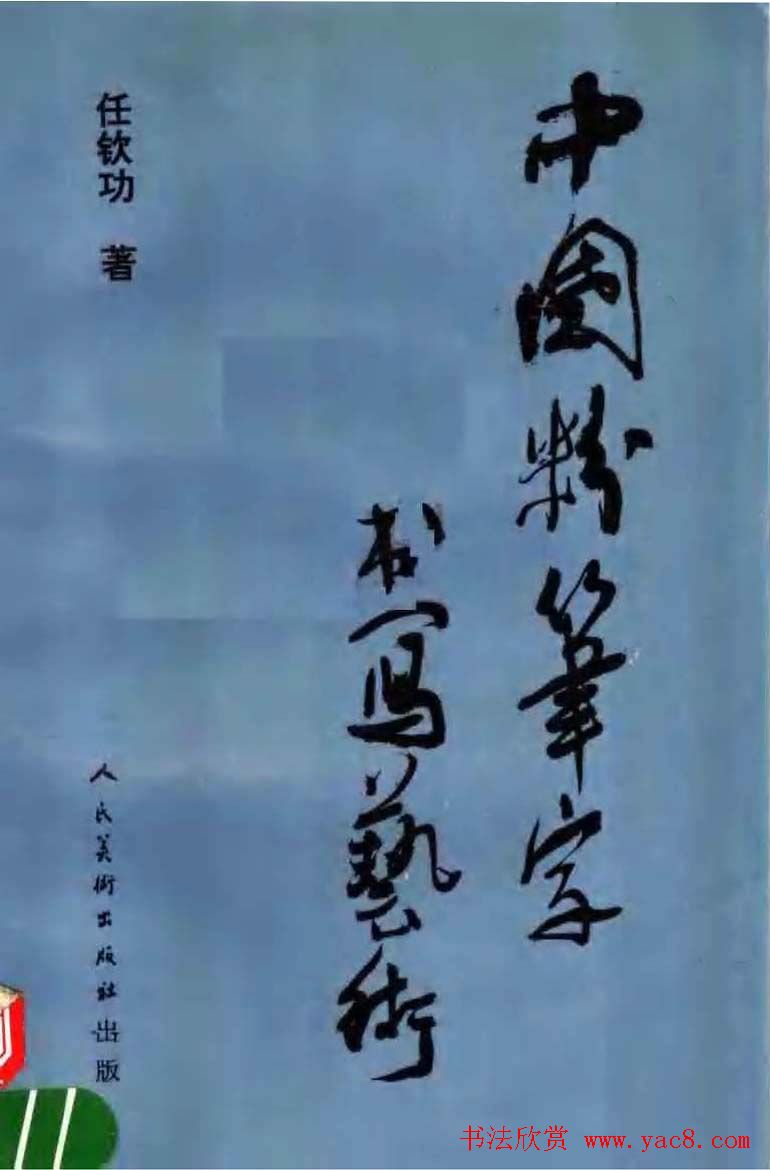 中國粉筆字
书寫藝術
任钦功 著
人民美術出版社出版
书法欣赏 www.yac8.com